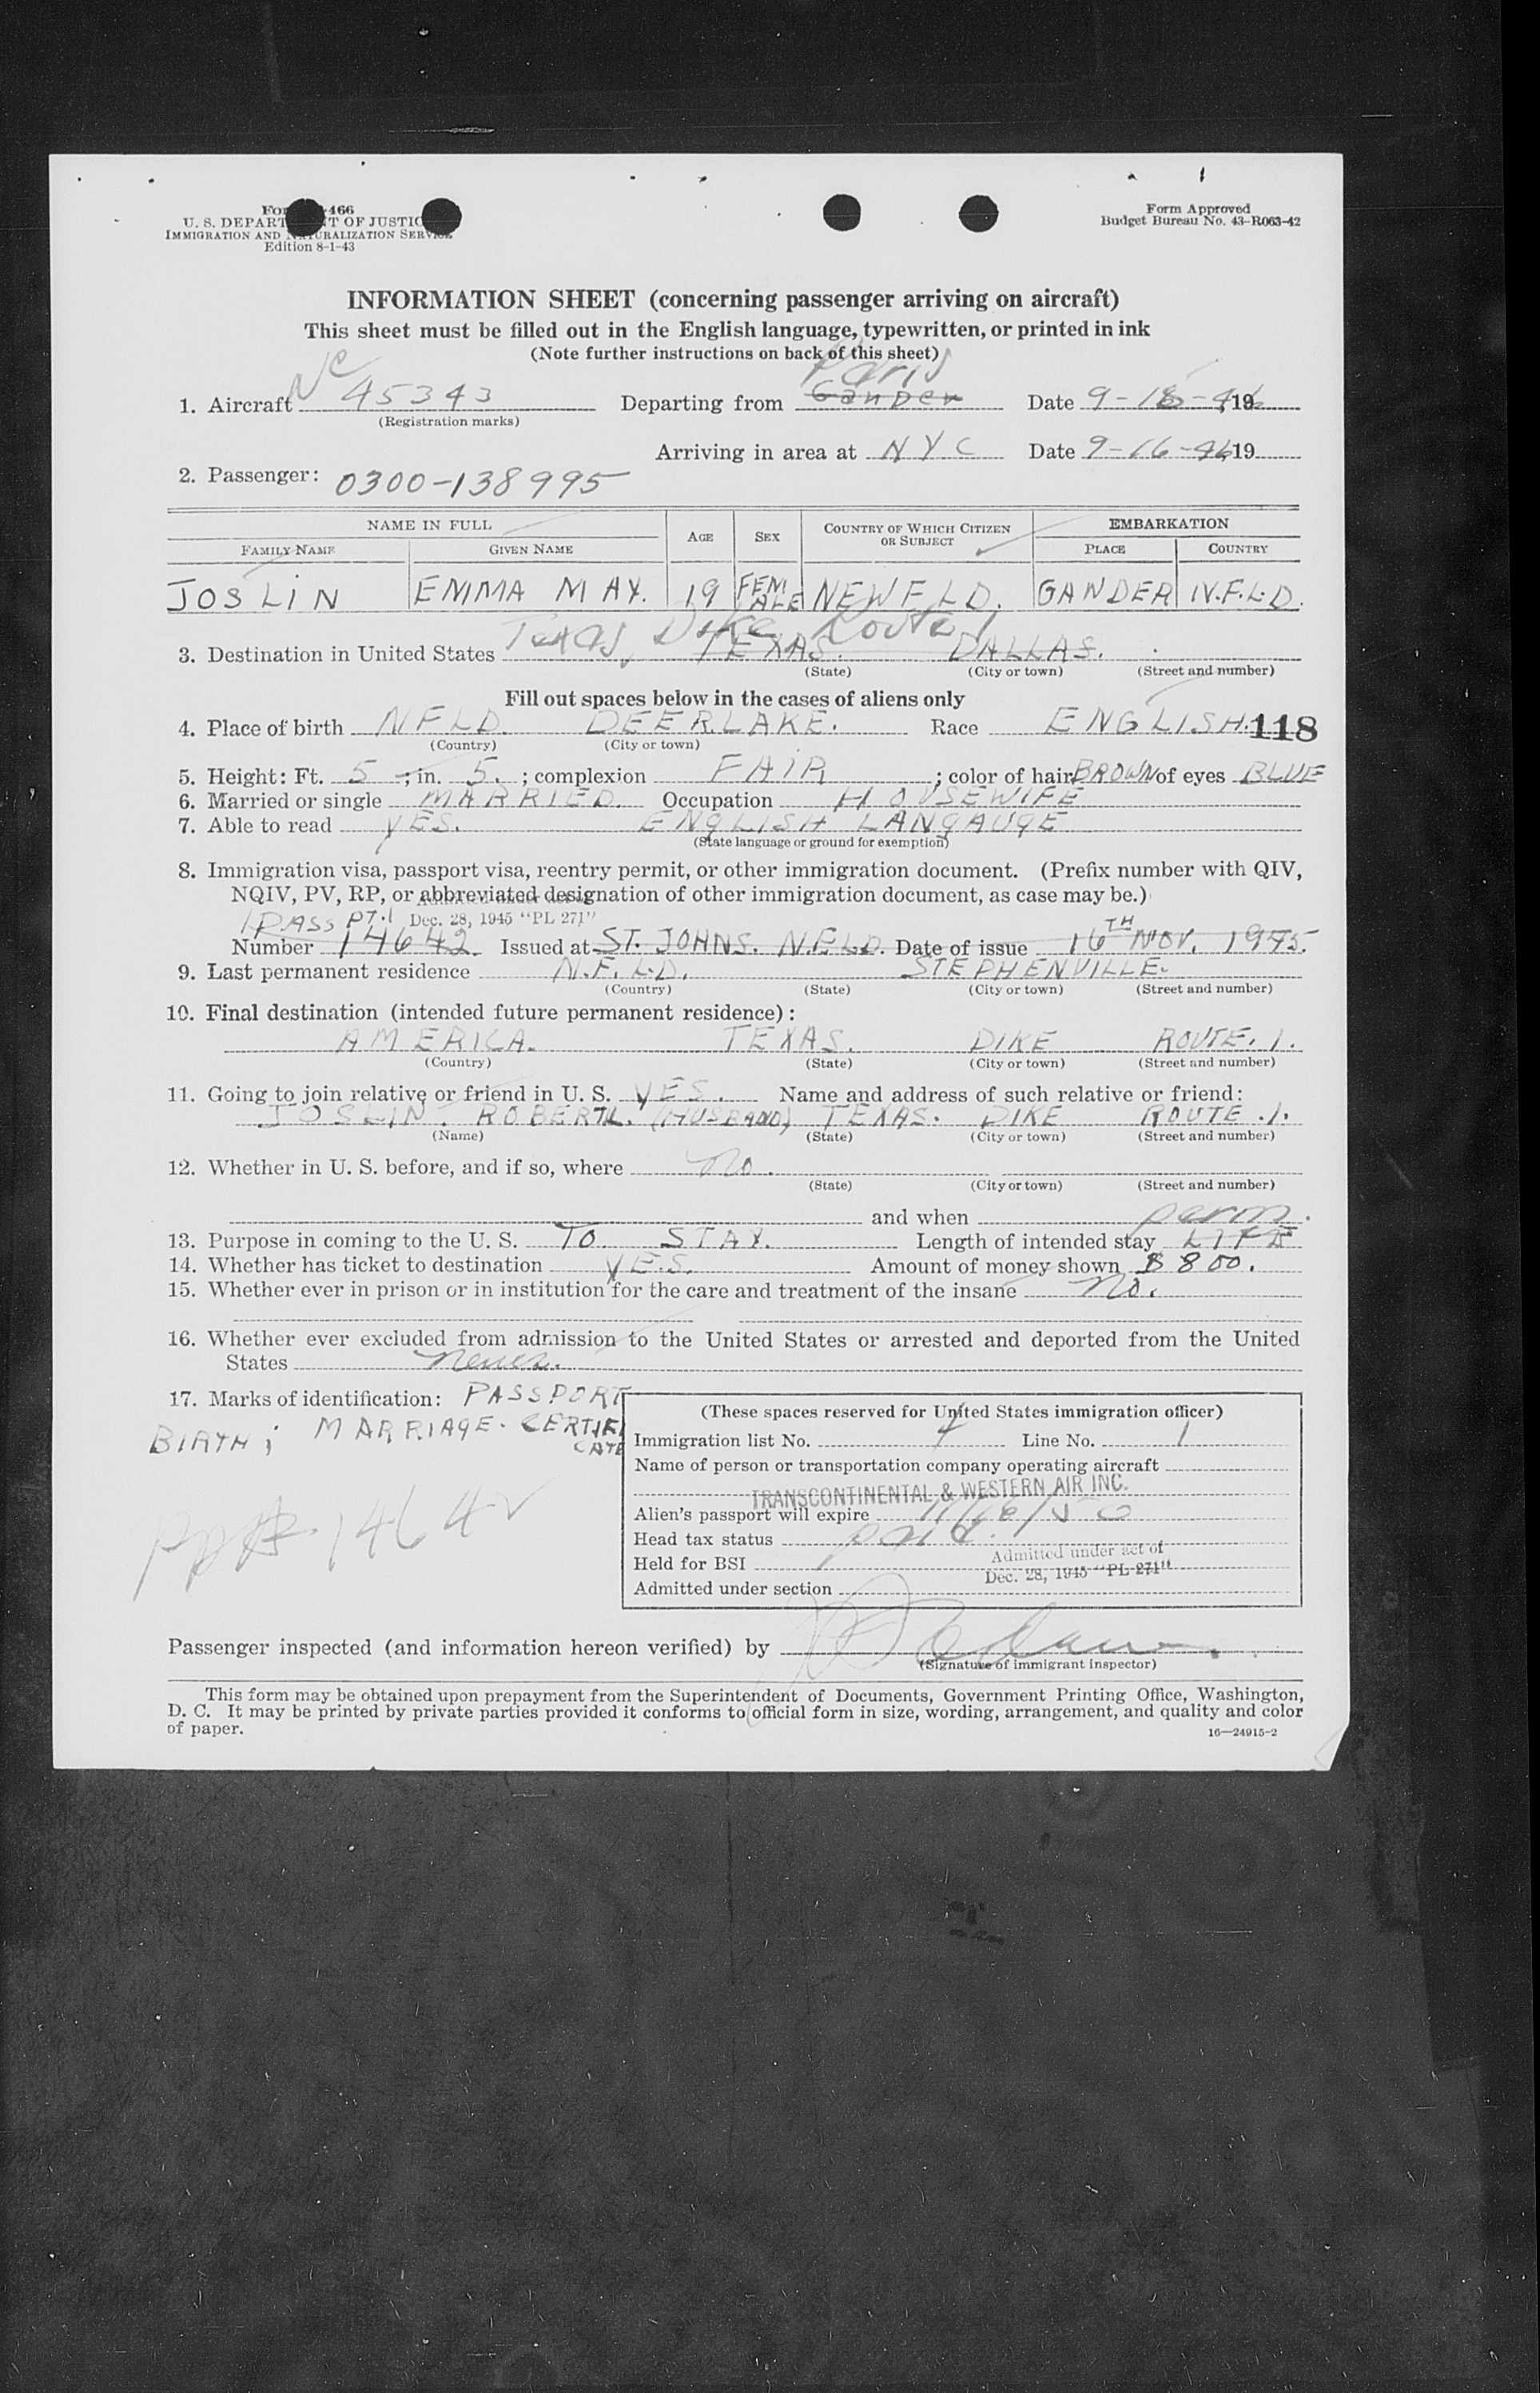 Form I-466
U. S. DEPARTMENT OF JUSTICE
IMMIGRATION AND NATURALIZATION SERVICE
Edition 8-1-43
Form Approved
Budget Bureau No. 43-R063-42
INFORMATION SHEET (concerning passenger arriving on aircraft)
This sheet must be filled out in the English language, typewritten, or printed in ink
(Note further instructions on back of this sheet)
Paris
1. Aircraft NC 45343 Departing from Gander Date 9-15-46, 19
(Registration marks)
Arriving in area at NYC Date 9-16-46, 19
2. Passenger: 0300-138995
NAME IN FULL AGE SEX COUNTRY OF WHICH CITIZEN OR SUBJECT EMBARKATION
FAMILY NAME GIVEN NAME PLACE COUNTRY
JOSLIN EMMA MAY. 19 FEMALE NEWFLD. GANDER N.F.L.D.
Texas, Dike Route 1
3. Destination in United States TEXAS. DALLAS.
(State) (City or town) (Street and number)
Fill out spaces below in the cases of aliens only
4. Place of birth NFLD. DEERLAKE. Race ENGLISH. 118
(Country) (City or town)
5. Height: Ft. 5 ; in. 5. ; complexion FAIR ; color of hair BROWN of eyes BLUE
6. Married or single MARRIED. Occupation HOUSEWIFE
7. Able to read YES. ENGLISH LANGAUGE
(State language or ground for exemption)
8. Immigration visa, passport visa, reentry permit, or other immigration document. (Prefix number with QIV,
NQIV, PV, RP, or abbreviated designation of other immigration document, as case may be.)
Admitted under act of
PASS PT. Dec. 28, 1945 "PL 271"
Number 14642 Issued at ST. JOHNS. NFLD. Date of issue 16TH NOV. 1945.
9. Last permanent residence N.F.L.D. STEPHENVILLE.
(Country) (State) (City or town) (Street and number)
10. Final destination (intended future permanent residence):
AMERICA. TEXAS. DIKE ROUTE. 1.
(Country) (State) (City or town) (Street and number)
11. Going to join relative or friend in U. S. YES. Name and address of such relative or friend:
JOSLIN. ROBERT L. (HUSBAND) TEXAS. DIKE ROUTE. 1.
(Name) (State) (City or town) (Street and number)
12. Whether in U. S. before, and if so, where No.
(State) (City or town) (Street and number)
and when
perm.
13. Purpose in coming to the U. S. TO STAY. Length of intended stay LIFE
14. Whether has ticket to destination YES. Amount of money shown $ 800.
15. Whether ever in prison or in institution for the care and treatment of the insane No.
16. Whether ever excluded from admission to the United States or arrested and deported from the United
States Never.
17. Marks of identification: PASSPORT
BIRTH; MARRIAGE. CERTIFICATE
(These spaces reserved for United States immigration officer)
Immigration list No. 4 Line No. 1
Name of person or transportation company operating aircraft
TRANSCONTINENTAL & WESTERN AIR INC.
Alien's passport will expire 11/16/50
Head tax status paid.
Held for BSI Admitted under act of
Dec. 28, 1945 "PL-271"
Admitted under section
14642
Passenger inspected (and information hereon verified) by
(Signature of immigrant inspector)
This form may be obtained upon prepayment from the Superintendent of Documents, Government Printing Office, Washington,
D. C. It may be printed by private parties provided it conforms to official form in size, wording, arrangement, and quality and color
of paper.
16—24915-2